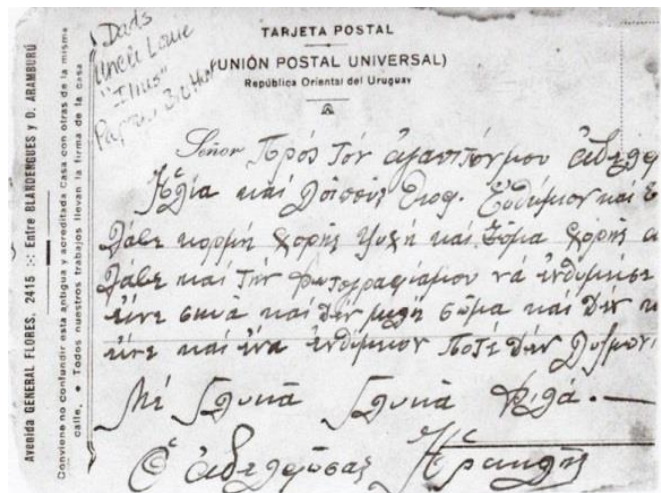 Avenida GENERAL FLORES, 2415 :-: Entre BLANDENGUES y D. ARAMBURÚ
Conviene no confundir esta antigua y acreditada Casa con otras de la misma
calle. • Todos nuestros trabajos llevan la firma de la casa
Dads
Uncle Louie
TARJETA POSTAL
(UNIÓN POSTAL UNIVERSAL)
República Oriental del Uruguay
Señor Πρός τόν ἀγαπιτόν μου ἀδελφ
Ηλία καί Εὐθύμιον καί
Λάβε κορμή χορής ψυχή καί σόμα χορής
Λάβε καί τήν φωτογραφίαμου νά ἐνθυμήσε
εἶνε σκιά καί δέν μιλῆ σῶμα καί δέν
εἶνε καί ἕνα ἐνθύμιον ποτέ δέν λυσμον
Μέ γλυκά γλυκά φιλά.—
Ὁ ἀδελφόσας Ηρακλῆς